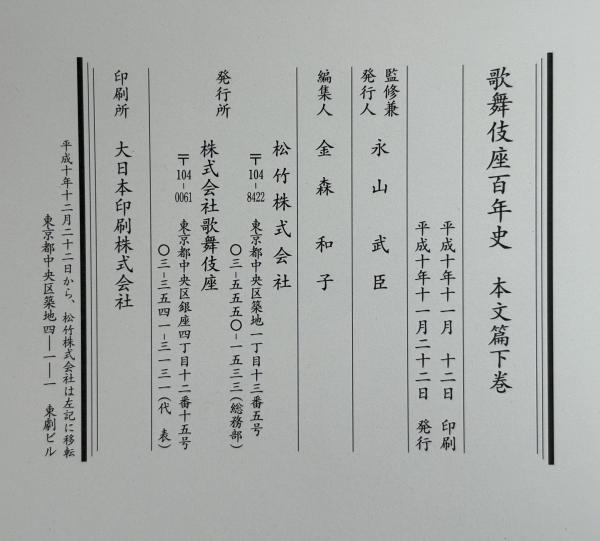 歌舞伎座百年史　本文篇下巻
平成十年十一月　十二日　印刷
平成十年十一月二十二日　発行
監修兼
発行人　永山武臣
編集人　金森和子
発行所　松竹株式会社
〒104-8422　東京都中央区築地一丁目十三番五号
〇三-五五五〇-一五三三(総務部)
株式会社歌舞伎座
〒104-0061　東京都中央区銀座四丁目十二番十五号
〇三-三五四一-三一三一(代　表)
印刷所　大日本印刷株式会社
平成十年十二月二十二日から、松竹株式会社は左記に移転
東京都中央区築地四—一—一　東劇ビル